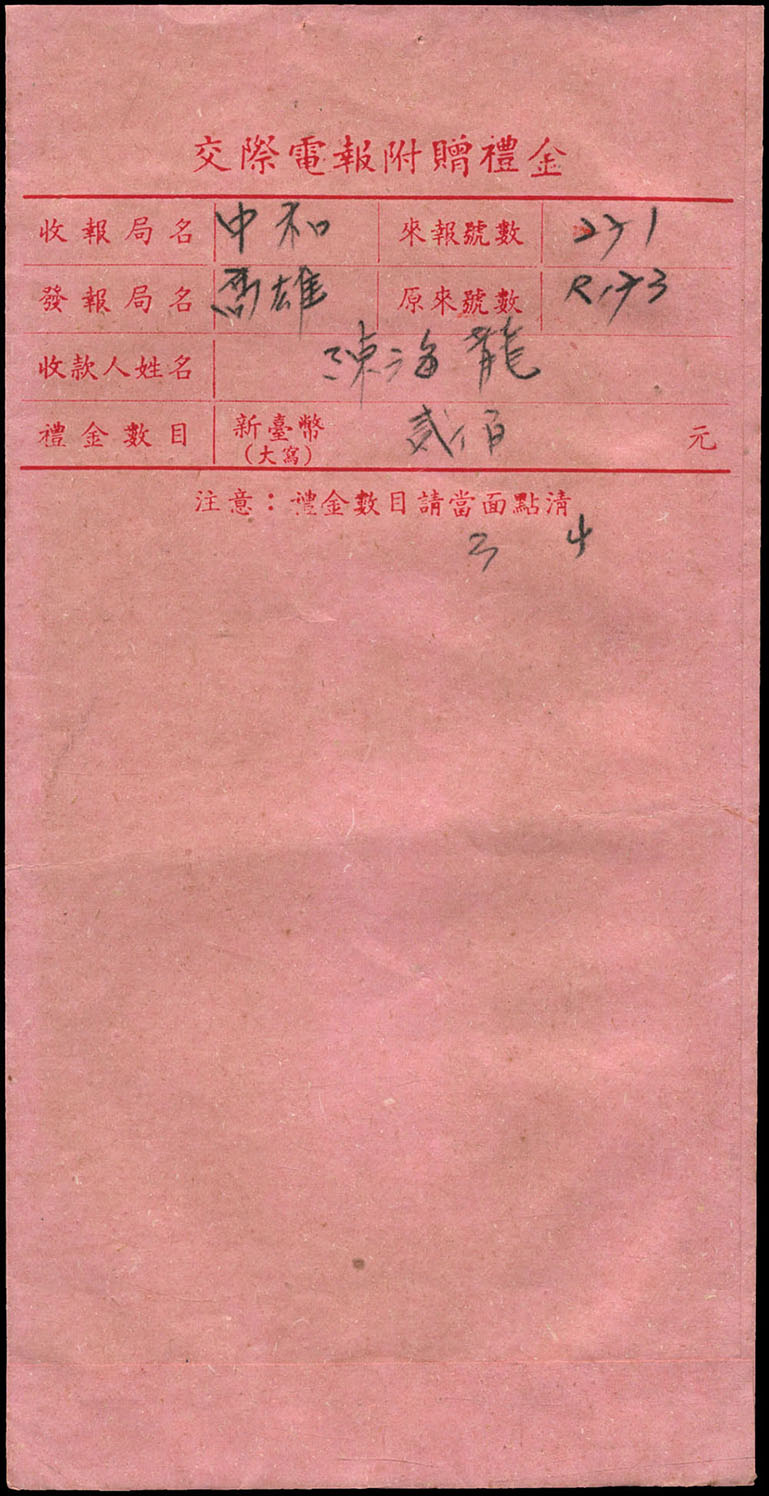 交際電報附贈禮金
收報局名 中和 來報號數 251
發報局名 高雄 原來號數 R153
收款人姓名 陳海龍
禮金數目 新臺幣 (大寫) 貳佰 元
注意：禮金數目請當面點清